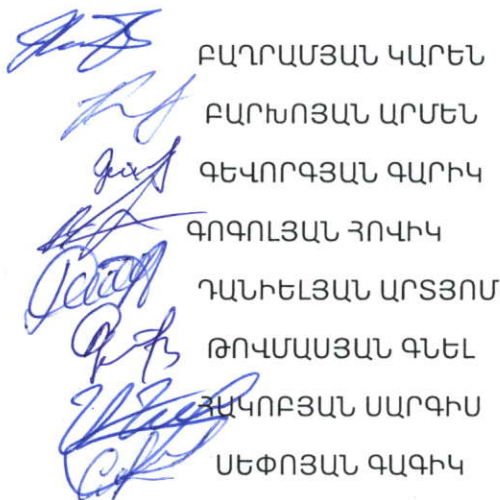 ԲԱՂՐԱՄՅԱՆ ԿԱՐԵՆ
ԲԱՐԽՈՅԱՆ ԱՐՄԵՆ
ԳԵՎՈՐԳՅԱՆ ԳԱՐԻԿ
ԳՈԳՈԼՅԱՆ ՀՈՎԻԿ
ԴԱՆԻԵԼՅԱՆ ԱՐՏՅՈՄ
ԹՈՎՄԱՍՅԱՆ ԳՆԵԼ
ՀԱԿՈԲՅԱՆ ՍԱՐԳԻՍ
ՍԵՓՈՅԱՆ ԳԱԳԻԿ